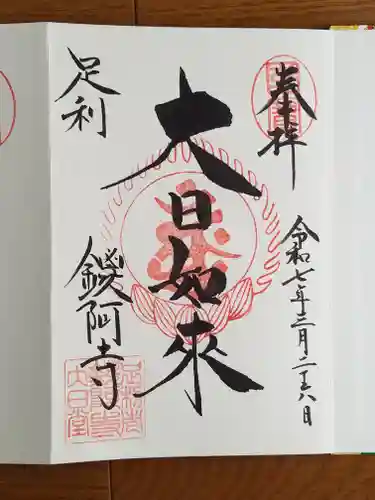 奉拝
令和七年三月二十八日
大日如来
足利
鑁阿寺